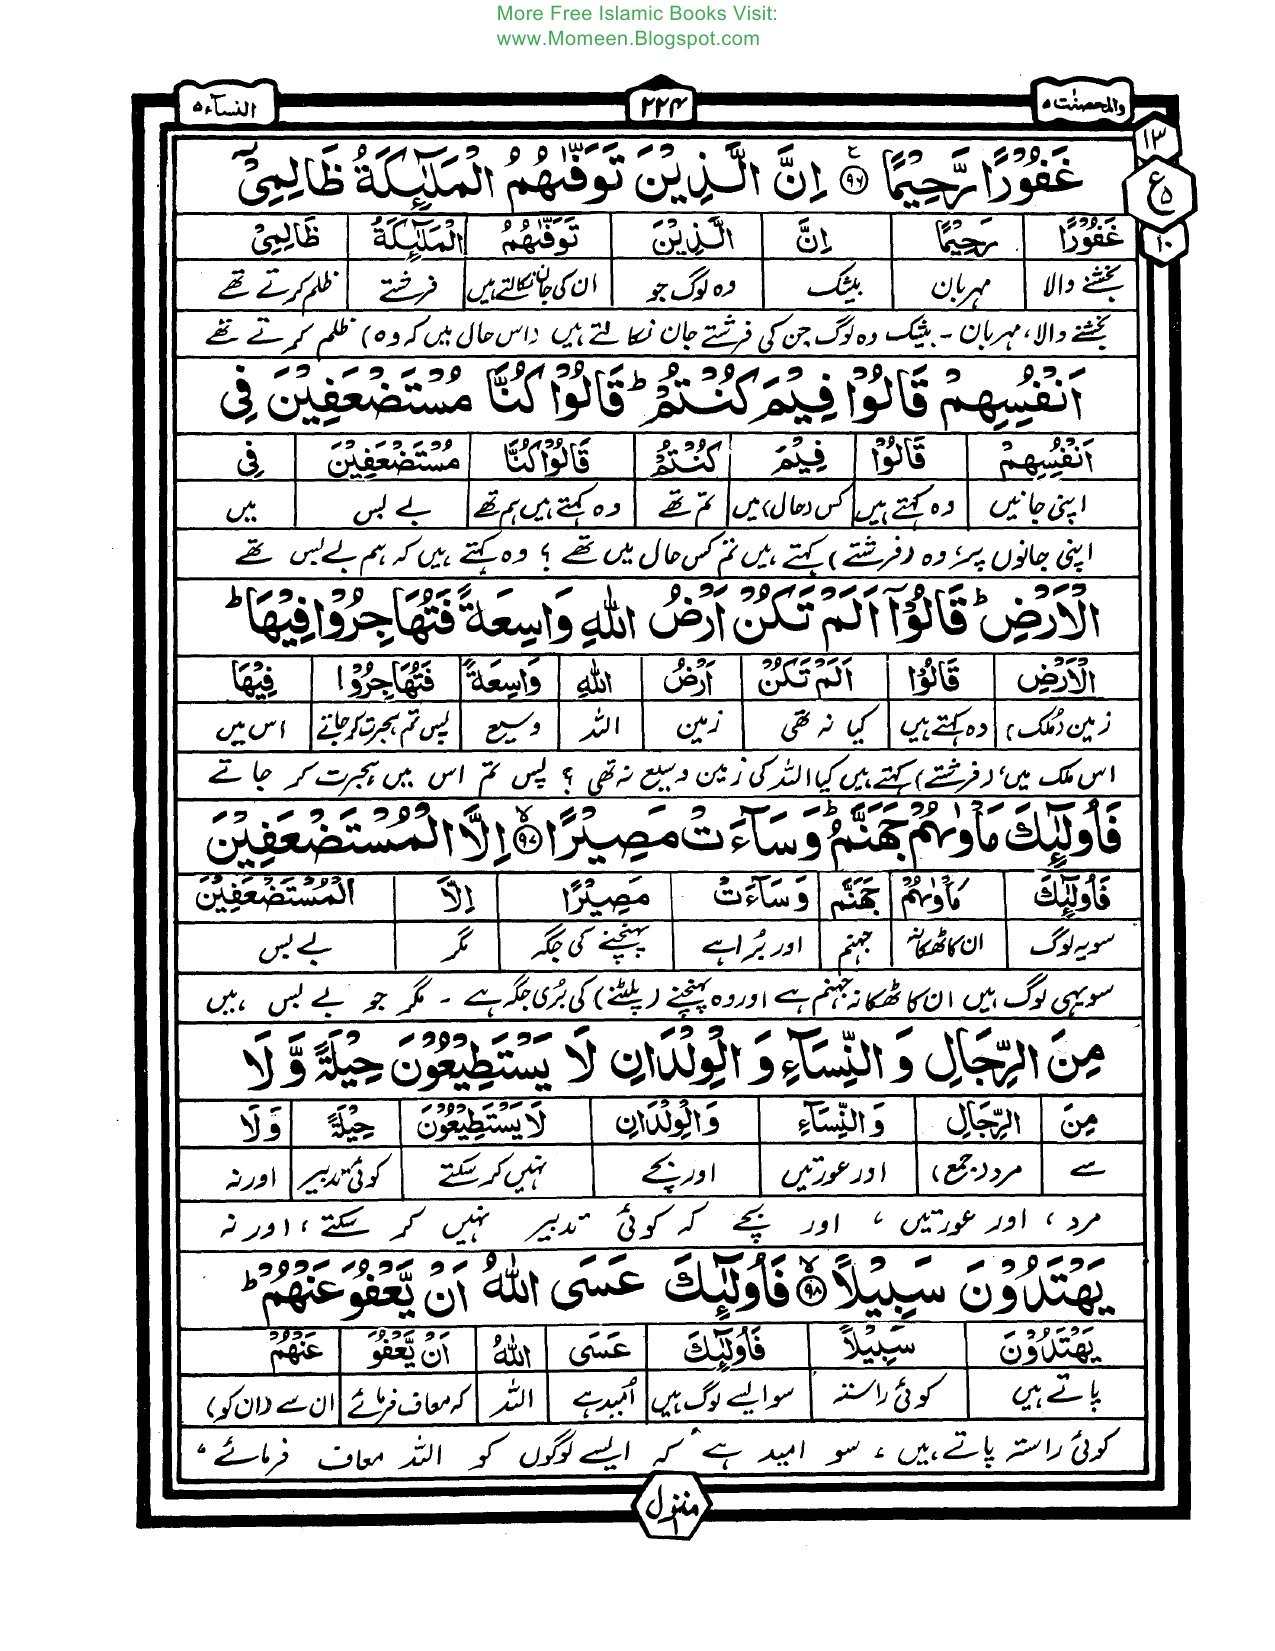 More Free Islamic Books Visit:
www.Momeen.Blogspot.com
والمحصنٰت ۵
۲۲۴
النسآء ۵
۱۳
ع ۵
۱۰
غَفُوْرًا رَّحِيْمًا ۹۶ اِنَّ الَّذِيْنَ تَوَفّٰىهُمُ الْمَلٰٓئِكَةُ ظَالِمِيْٓ
غَفُوْرًا رَحِيْمًا اِنَّ الَّذِيْنَ تَوَفّٰىهُمُ الْمَلٰٓئِكَةُ ظَالِمِيْٓ
بخشنے والا مہربان بیشک وہ لوگ جو ان کی جان نکالتے ہیں فرشتے ظلم کرتے تھے
بخشنے والا، مہربان ۔ بیشک وہ لوگ جن کی فرشتے جان نکالتے ہیں (اس حال میں کہ وہ) ظلم کرتے تھے
اَنْفُسِهِمْ قَالُوْا فِيْمَ كُنْتُمْ ؕ قَالُوْا كُنَّا مُسْتَضْعَفِيْنَ فِي
اَنْفُسِهِمْ قَالُوْا فِيْمَ كُنْتُمْ قَالُوْا كُنَّا مُسْتَضْعَفِيْنَ فِي
اپنی جانیں وہ کہتے ہیں کس (حال) میں تم تھے وہ کہتے ہیں ہم تھے بے بس میں
اپنی جانوں پر، وہ (فرشتے) کہتے ہیں تم کس حال میں تھے ؟ وہ کہتے ہیں کہ ہم بے بس تھے
الْاَرْضِ ؕ قَالُوْٓا اَلَمْ تَكُنْ اَرْضُ اللّٰهِ وَاسِعَةً فَتُهَاجِرُوْا فِيْهَا ؕ
الْاَرْضِ قَالُوْا اَلَمْ تَكُنْ اَرْضُ اللّٰهِ وَاسِعَةً فَتُهَاجِرُوْا فِيْهَا
زمین (ملک) وہ کہتے ہیں کیا نہ تھی زمین اللہ وسیع پس تم ہجرت کر جاتے اس میں
اس ملک میں، (فرشتے) کہتے ہیں کیا اللہ کی زمین وسیع نہ تھی ؟ پس تم اس میں ہجرت کر جاتے
فَاُولٰٓئِكَ مَاْوٰىهُمْ جَهَنَّمُ ؕ وَسَآءَتْ مَصِيْرًا ۙ۹۷ اِلَّا الْمُسْتَضْعَفِيْنَ
فَاُولٰٓئِكَ مَاْوٰىهُمْ جَهَنَّمُ وَسَآءَتْ مَصِيْرًا اِلَّا الْمُسْتَضْعَفِيْنَ
سو یہ لوگ ان کا ٹھکانہ جہنم اور بُرا ہے پہنچنے کی جگہ مگر بے بس
سو یہی لوگ ہیں ان کا ٹھکانہ جہنم ہے اور وہ پہنچنے (پلٹنے) کی بُری جگہ ہے ۔ مگر جو بے بس ہیں
مِنَ الرِّجَالِ وَ النِّسَآءِ وَ الْوِلْدَانِ لَا يَسْتَطِيْعُوْنَ حِيْلَةً وَّ لَا
مِنَ الرِّجَالِ وَ النِّسَآءِ وَ الْوِلْدَانِ لَا يَسْتَطِيْعُوْنَ حِيْلَةً وَ لَا
سے مرد (جمع) اور عورتیں اور بچے نہیں کر سکتے کوئی تدبیر اور نہ
مرد ، اور عورتیں ، اور بچے کہ کوئی تدبیر نہیں کر سکتے ، اور نہ
يَهْتَدُوْنَ سَبِيْلًا ۙ۹۸ فَاُولٰٓئِكَ عَسَى اللّٰهُ اَنْ يَّعْفُوَ عَنْهُمْ ؕ
يَهْتَدُوْنَ سَبِيْلًا فَاُولٰٓئِكَ عَسَى اللّٰهُ اَنْ يَّعْفُوَ عَنْهُمْ
پاتے ہیں کوئی راستہ سو ایسے لوگ ہیں اُمید ہے اللہ کہ معاف فرمائے ان سے (ان کو)
کوئی راستہ پاتے ہیں ، سو امید ہے کہ ایسے لوگوں کو اللہ معاف فرمائے ،
منزل ۱